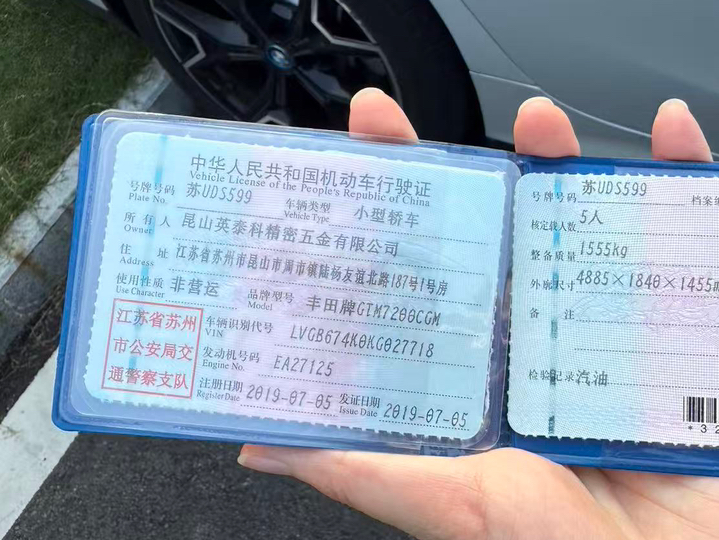 中华人民共和国机动车行驶证
Vehicle License of the People's Republic of China
号牌号码 苏UDS599 车辆类型 小型轿车
Plate No. Vehicle Type
所有人 昆山英泰科精密五金有限公司
Owner
住址 江苏省苏州市昆山市周市镇陆杨友谊北路187号1号房
Address
使用性质 非营运 品牌型号 丰田牌GTM7200CGM
Use Character Model
江苏省苏州
市公安局交
通警察支队
车辆识别代号 LVGB674K0KG027718
VIN
发动机号码 EA27125
Engine No.
注册日期 2019-07-05 发证日期 2019-07-05
Register Date Issue Date
号牌号码 苏UDS599 档案编
核定载人数 5人
整备质量 1555kg
外廓尺寸 4885×1840×1455
备注
检验记录 汽油
*32